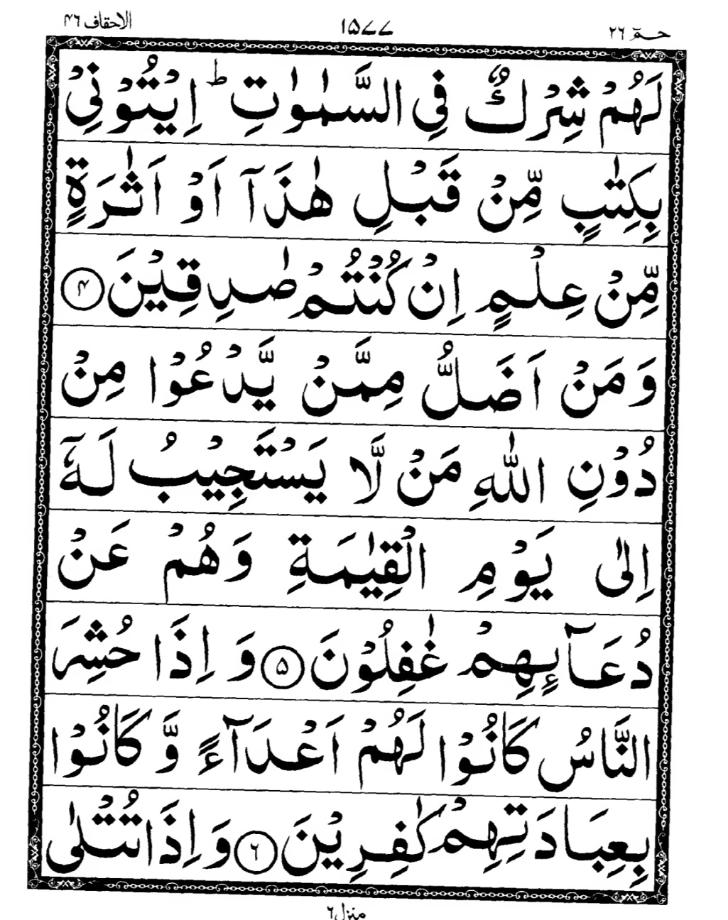 حٰمٓ ۲۶ ۱۵۷۷ الاحقاف ۴۶
لَهُمْ شِرْكٌ فِى السَّمٰوٰتِ ؕ اِيْتُوْنِىْ
بِكِتٰبٍ مِّنْ قَبْلِ هٰذَاۤ اَوْ اَثٰرَةٍ
مِّنْ عِلْمٍ اِنْ كُنْتُمْ صٰدِقِيْنَ ۴
وَمَنْ اَضَلُّ مِمَّنْ يَّدْعُوْا مِنْ
دُوْنِ اللّٰهِ مَنْ لَّا يَسْتَجِيْبُ لَهٗۤ
اِلٰى يَوْمِ الْقِيٰمَةِ وَهُمْ عَنْ
دُعَآىِٕهِمْ غٰفِلُوْنَ ۵ وَ اِذَا حُشِرَ
النَّاسُ كَانُوْا لَهُمْ اَعْدَآءً وَّ كَانُوْا
بِعِبَادَتِهِمْ كٰفِرِيْنَ ۶ وَاِذَا تُتْلٰى
منزل ۶